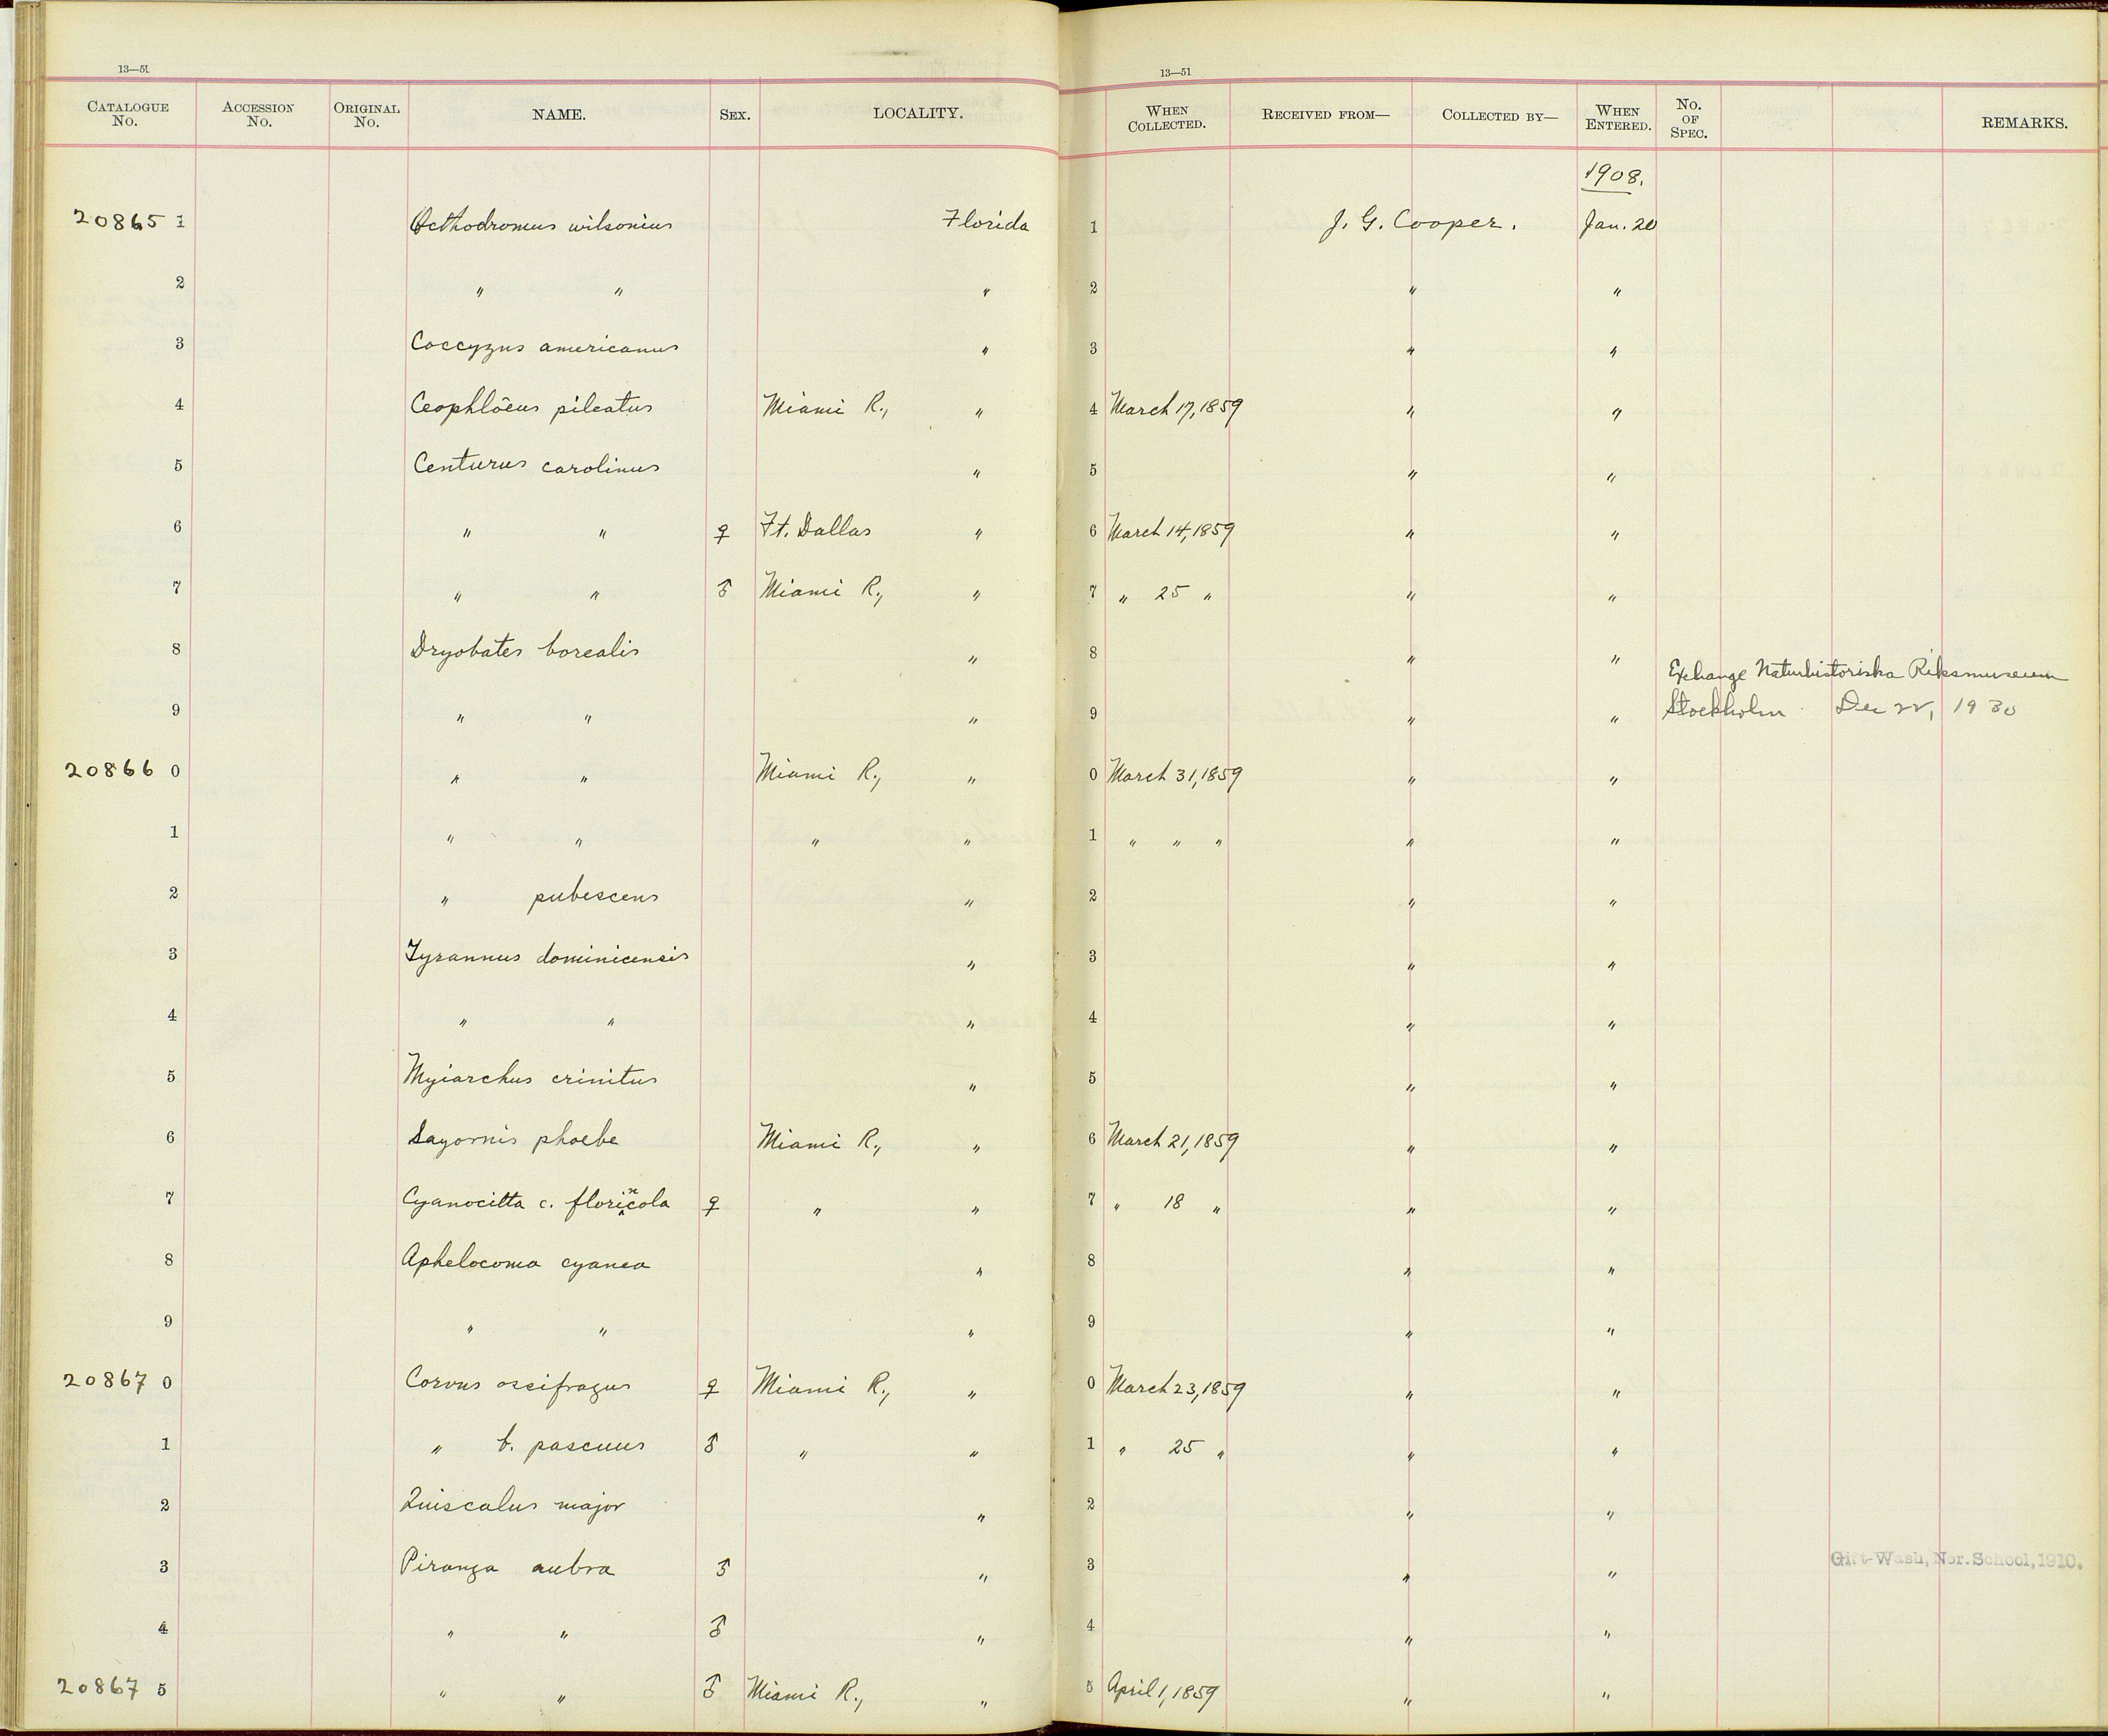 13—51
13—51
CATALOGUE No. ACCESSION No. ORIGINAL No. NAME. SEX. LOCALITY. WHEN COLLECTED. RECEIVED FROM— COLLECTED BY— WHEN ENTERED. No. OF SPEC. REMARKS.
1908.
20865 1 Octhodromus wilsonius Florida 1 J. G. Cooper. Jan. 20
2 " " " 2 " "
3 Coccyzus americanus " 3 " "
4 Ceophlöeus pileatus Miami R., " 4 March 17, 1859 " "
5 Centurus carolinus " 5 " "
6 " " ♀ Ft. Dallas " 6 March 14, 1859 " "
7 " " ♂ Miami R., " 7 " 25 " " "
8 Dryobates borealis " 8 " " Exchange Naturhistoriska Riksmuseum
9 " " " 9 " " Stockholm Dec 22, 1930
20866 0 " " Miami R., " 0 March 31, 1859 " "
1 " " " " 1 " " " " "
2 " pubescens " 2 " "
3 Tyrannus dominicensis " 3 " "
4 " " " 4 " "
5 Myiarchus crinitus " 5 " "
6 Sayornis phoebe Miami R., " 6 March 21, 1859 " "
7 Cyanocitta c. florincola ♀ " " 7 " 18 " " "
8 Aphelocoma cyanea " 8 " "
9 " " " 9 " "
20867 0 Corvus ossifragus ♀ Miami R., " 0 March 23, 1859 " "
1 " b. pascuus ♂ " " 1 " 25 " " "
2 Quiscalus major " 2 " "
3 Piranga rubra ♂ " 3 " " Gift-Wash, Nor. School, 1910.
4 " " ♂ " 4 " "
20867 5 " " ♂ Miami R., " 5 April 1, 1859 " "